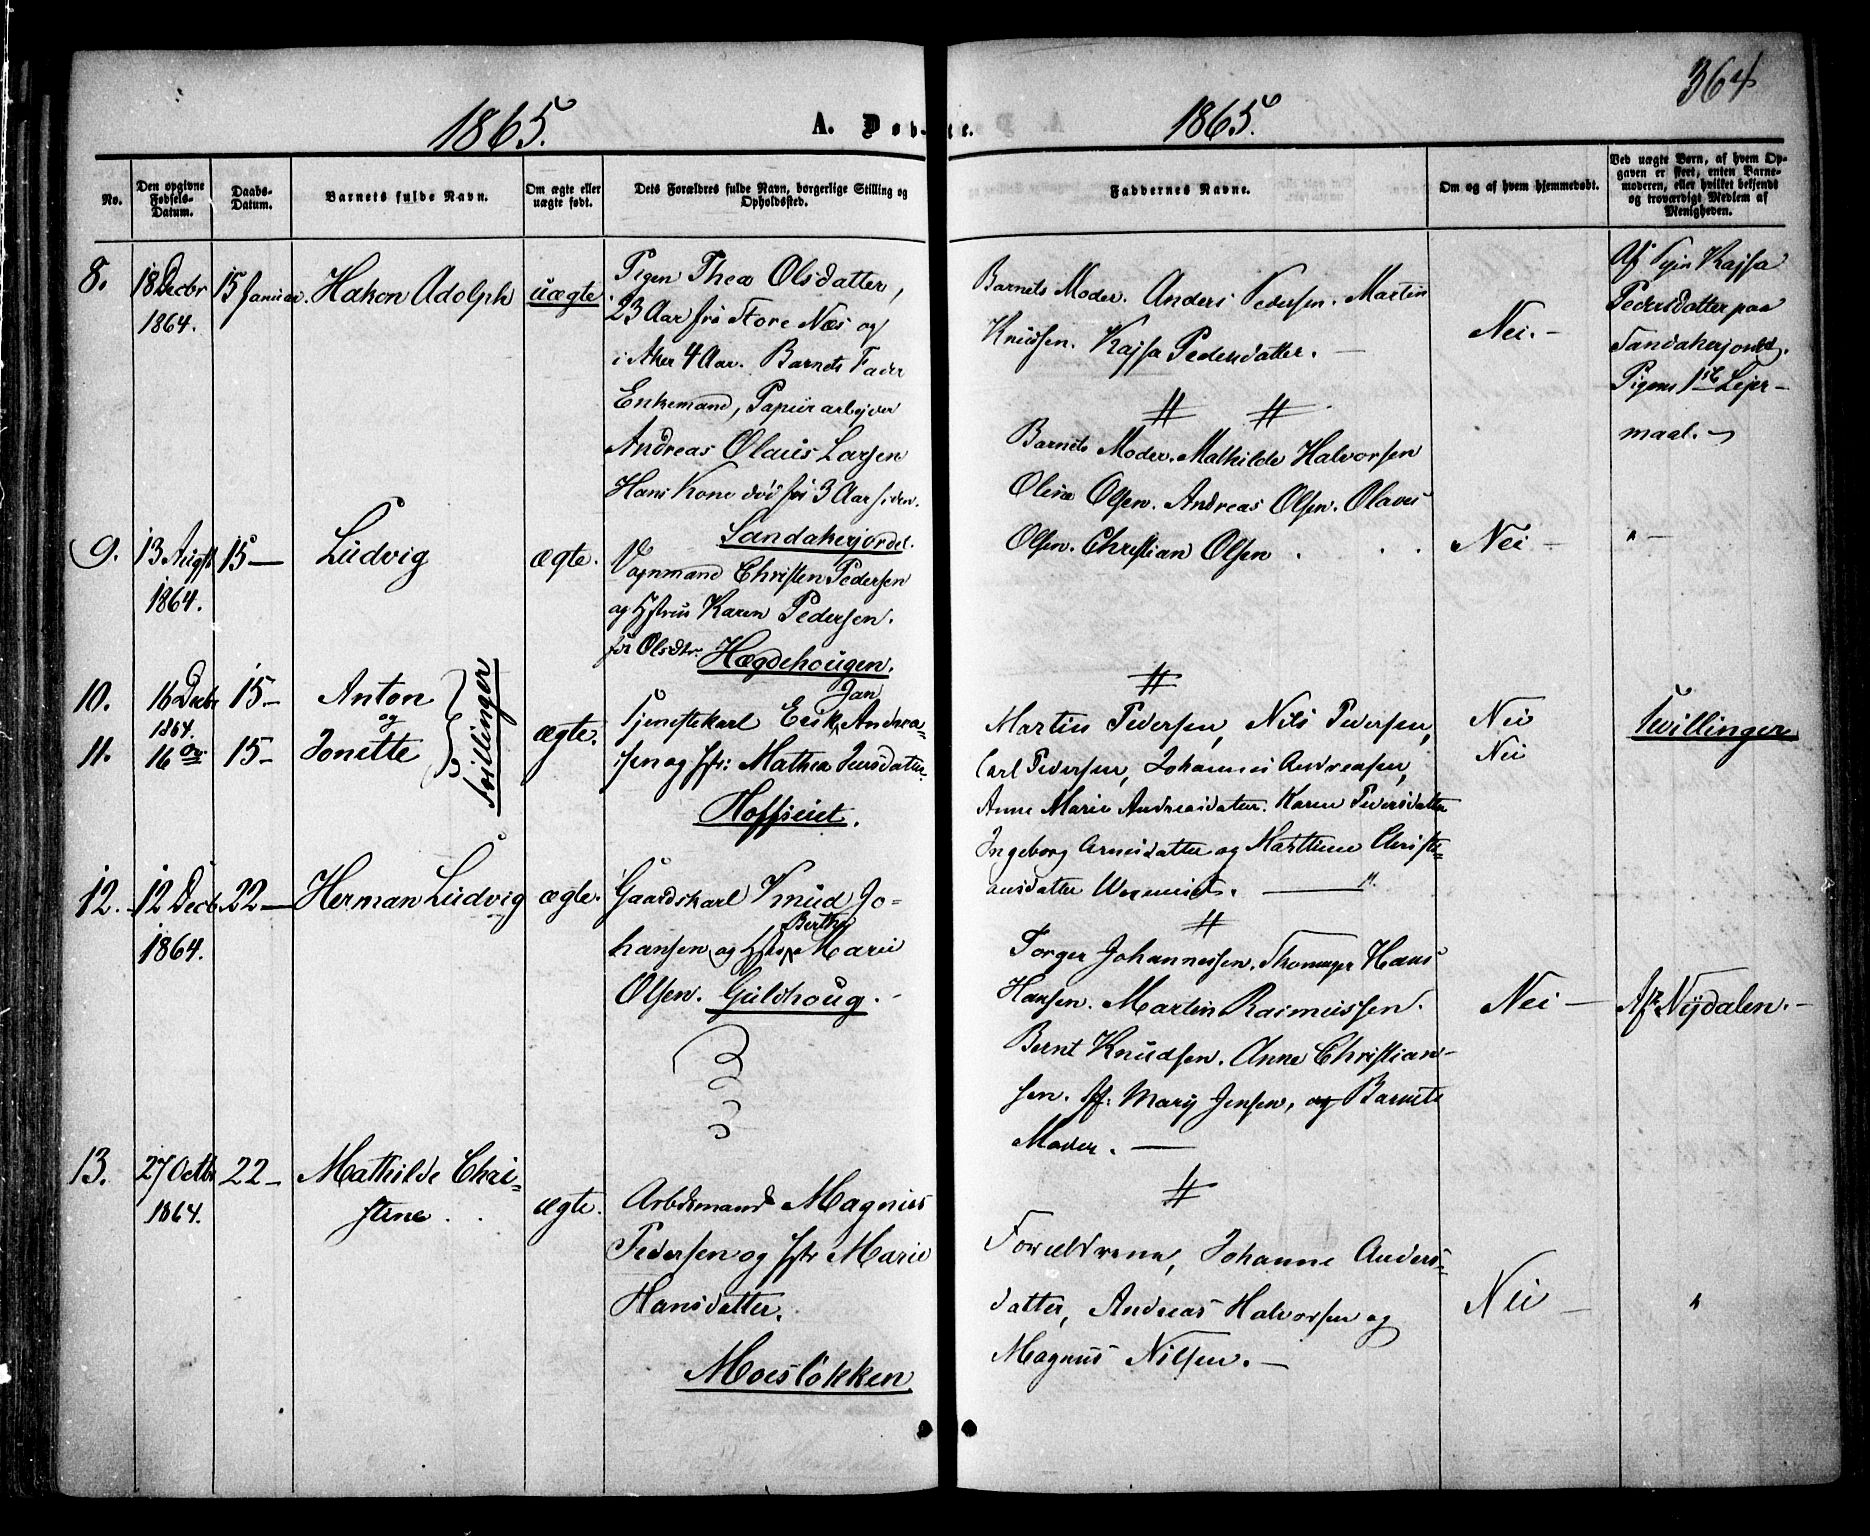 364
1865.
A. Døb-
te.
1865.
No.
Den opgivne Fødsels-Datum.
Daabs-Datum.
Barnets fulde Navn.
Om ægte eller uægte født.
Dets Forældres fulde Navn, borgerlige Stilling og Opholdssted.
Faddernes Navne.
Om og af hvem hjemmedøbt.
Ved uægte Børn, af hvem Op-
gaven er skeet, enten Barne-
moderen, eller hvilket bekjendt
og troværdigt Medlem af
Menigheden.
8.
18 Decbr
1864.
15 Januar.
Hakon Adolph
uægte
Pigen Thea Olsdatter,
23 Aar fra Store Næs og
i Aker 4 Aar. Barnets Fader
Enkemand, Papirarbejder
Andreas Olaus Larsen
Hans Kone død for 3 Aar siden.
Sandakerjordet.
Barnets Moder. Anders Pedersen. Martin
Knudsen. Kajsa Pedersdatter. —
Nei. —
Af Kajsa
Pedersdatter paa
Sandakerjordet.
Pigens 1ste Lejer-
maal. —
9.
13 Augst
1864.
15 —
Ludvig
ægte.
Vognmand Christen Pedersen
og Hstru Karen Pedersen.
Olsdtr. Hægdehougen.
Barnets Moder. Mathilde Halvorsen
Olina Olsen. Andreas Olsen. Olaves
Olsen. Christian Olsen
Nei —
" —
10.
16 Decbr
1864.
15 —
Anton
og
11.
16 —
15 —
Jonette
Tvillinger
ægte.
Tjenestekarl Erik Jan Andrea-
sen og Hstr: Mathea
Hoffsiet.
Martin Pedersen, Nils Pedersen,
Carl Pedersen, Johannes Andreasen,
Anne Marie Andreasdatter. Karen Pedersdatter
Ingeborg Arnesdatter og Marthine Christi-
ansdatter
Nei
Nei
Tvillinger
12.
12 Decb.
1864.
22 —
Herman Ludvig
ægte.
Gaardskarl Knud Jo-
hansen og Hstr. Berthe Marie
Olsen. Guldhoug.
Torger Johannessen. Hans
Hansen. Martin Rasmussen.
Bernt Knudsen. Anne Christian-
sen. Mary Jensen, og Barnets
Moder. —
Nei —
Af Nydalen. —
13.
27 Octbr
1864.
22 —
Mathilde Chri-
stine.
ægte.
Arbdsmand Magnus
Pedersen og Hstr Marie
Hansdatter.
Moesløkken
Forældrene, Johanne Anders-
datter, Andreas Halvorsen og
Magnus Nilsen. —
Nei —
"